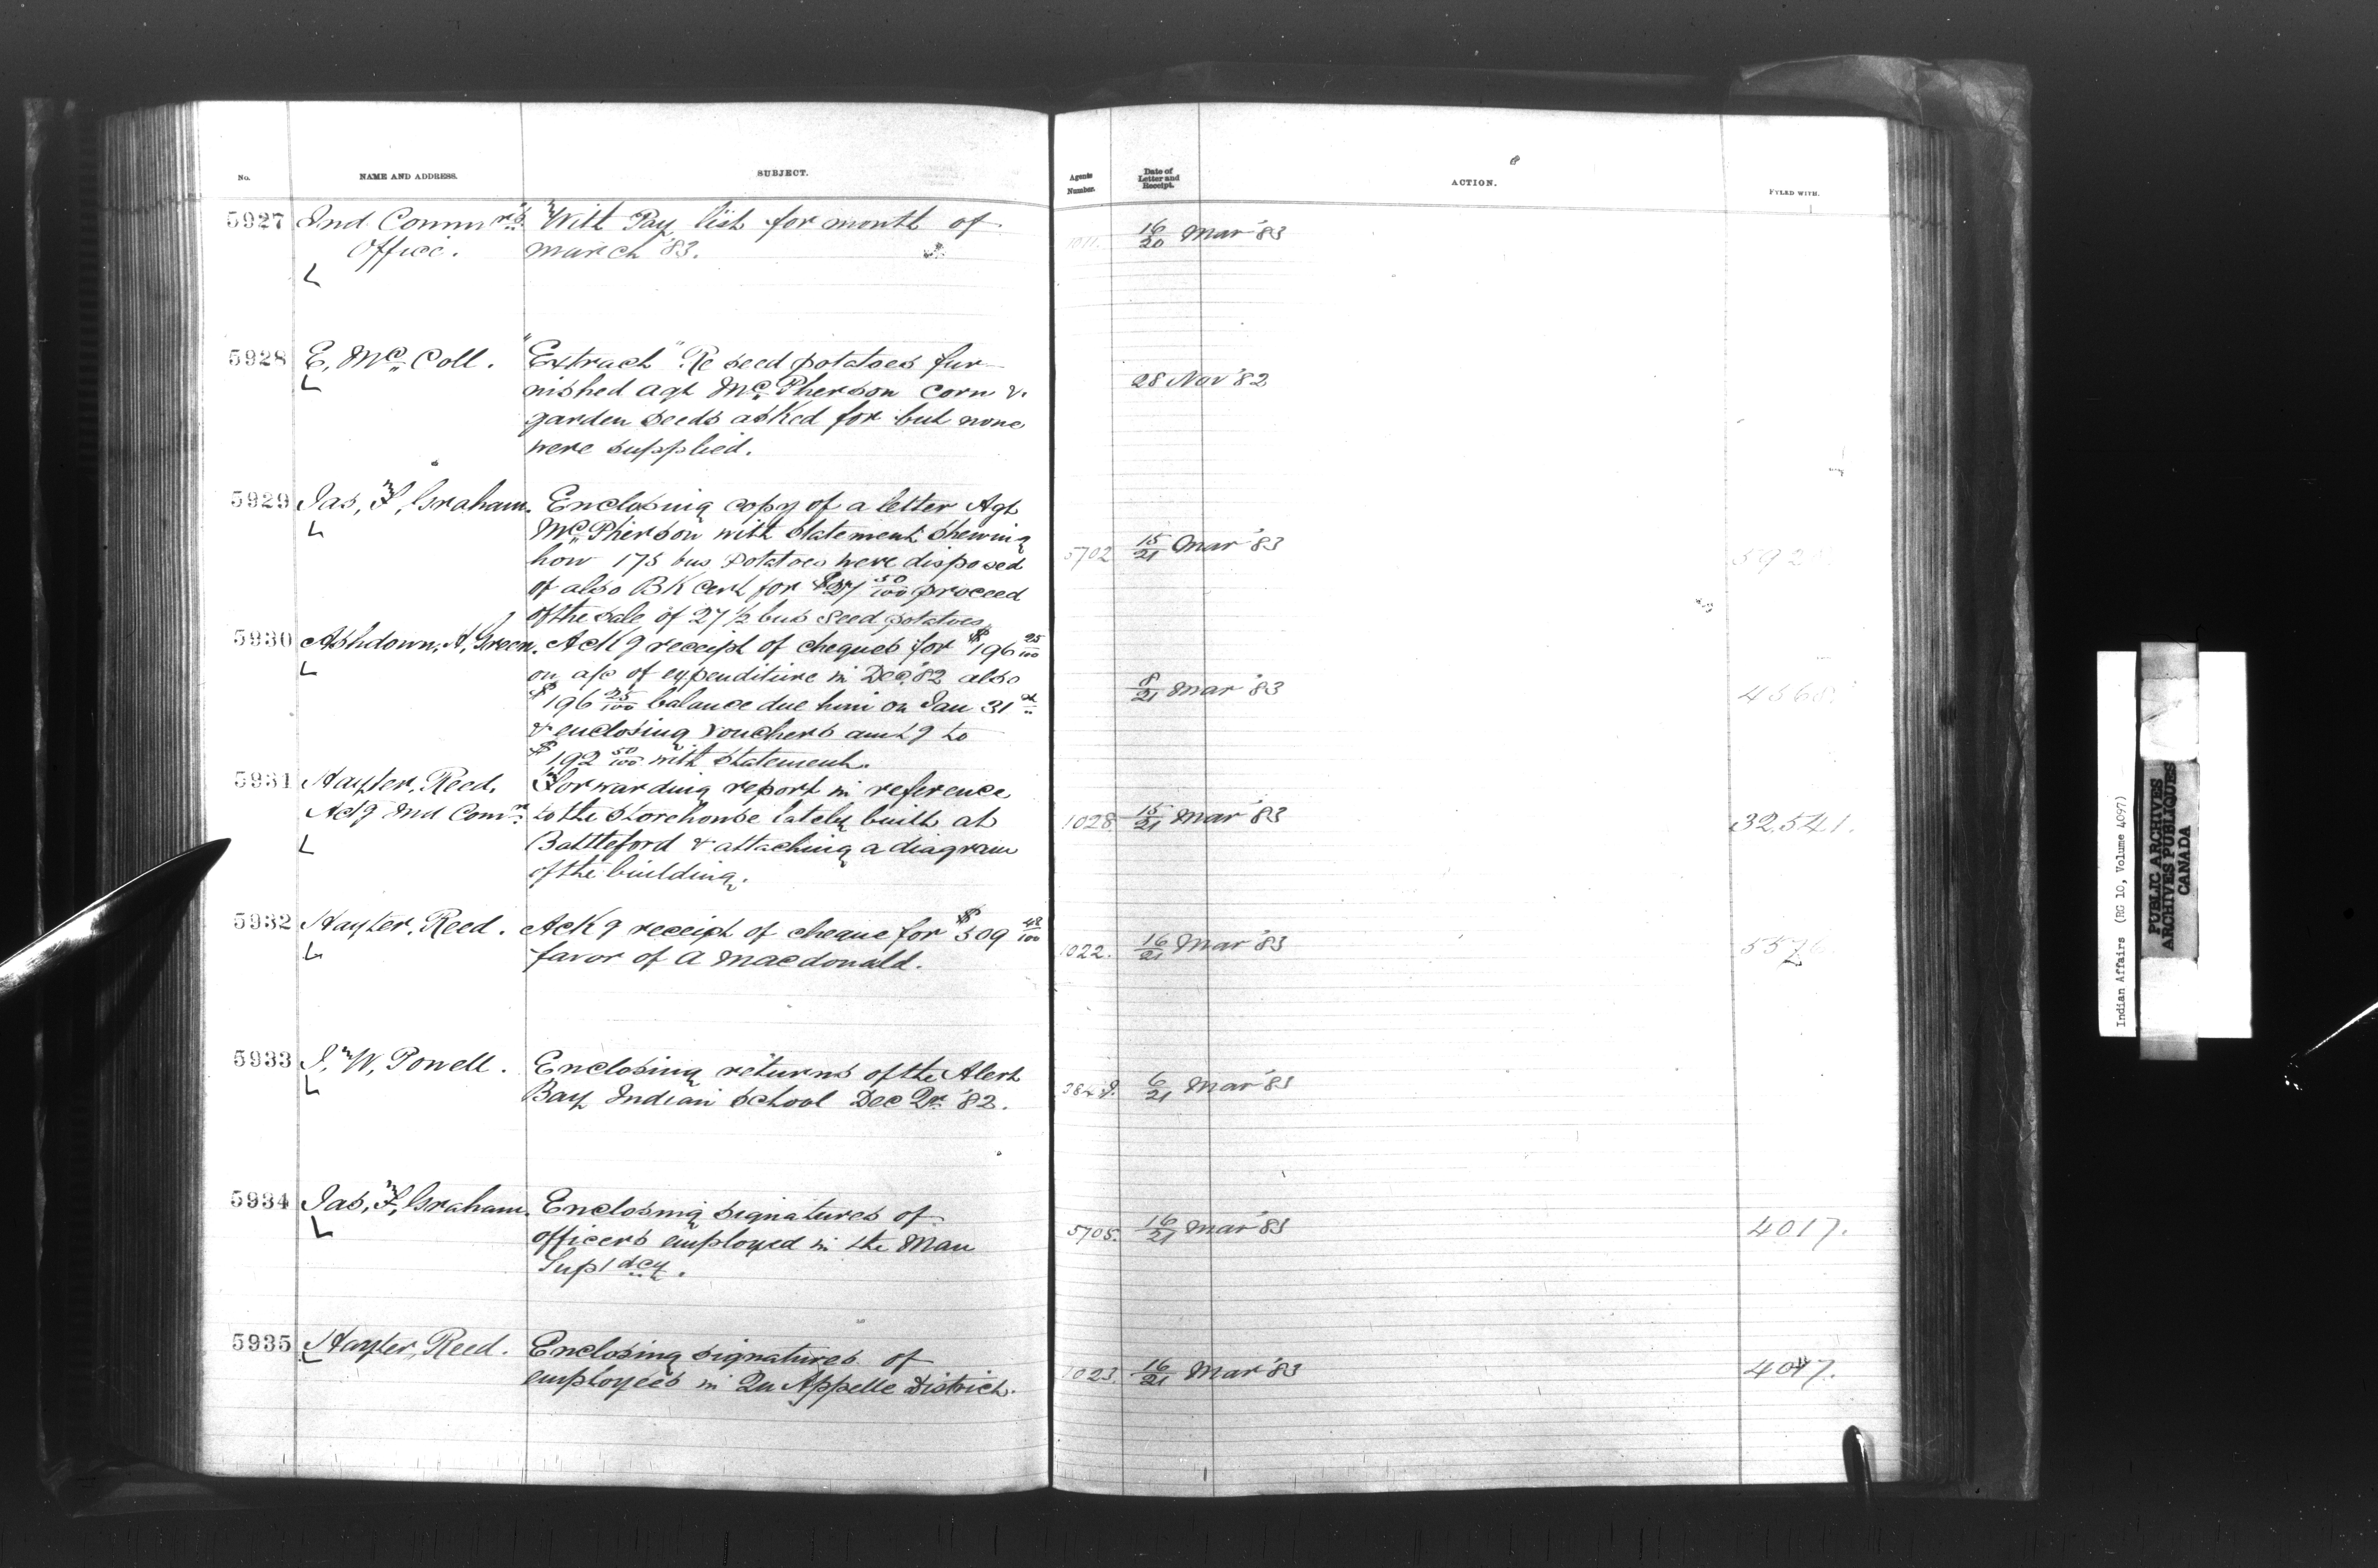 No. NAME AND ADDRESS. SUBJECT. Agents Number. Date of Letter and Receipt. ACTION. FYLED WITH.
5927 Ind Commrs With Pay list for month of 16/20 Mar '83
Office. March '83.
5928 E, McColl. "Extract" Re seed potatoes fur-
nished agt McPherson corn & 28 Nov '82
garden seeds asked for but none
were supplied.
5929 Jas, F, Graham. Enclosing copy of a letter Agt
McPherson with statement shewing 5702 15/21 Mar '83
how 175 bus potatoes were disposed
of also BK cert for $27 50/100 proceed
of the sale of 27 1/2 bus seed potatoes
5930 Ashdown, H, Green. Ackg receipt of cheques for $196 25/100
on a/c of expenditure in Dec '82 also
$196 25/100 balance due him on Jan 31st 8/21 Mar '83
& enclosing vouchers amtg to
$192 50/100 with statement.
5931 Hayter, Reed. Forwarding report in reference
Actg Ind Comr to the storehouse lately built at 1028. 15/21 Mar '83 32541.
Battleford & attaching a diagram
of the building.
5932 Hayter, Reed. Ackg receipt of cheque for $309 48/100
favor of A Macdonald. 1022. 16/21 Mar '83
5933 I, W, Powell. Enclosing returns of the Alert
Bay Indian School Dec Qr '82. 6/21 Mar '83
5934 Jas, F, Graham. Enclosing signatures of
officers employed in the Man 5705. 16/21 Mar '83 4017.
Suptdcy.
5935 Hayter, Reed. Enclosing signatures of
employees in Qu Appelle District. 1023. 16/21 Mar '83 4017.
Indian Affairs (RG 10, Volume 4097)
PUBLIC ARCHIVES
ARCHIVES PUBLIQUES
CANADA